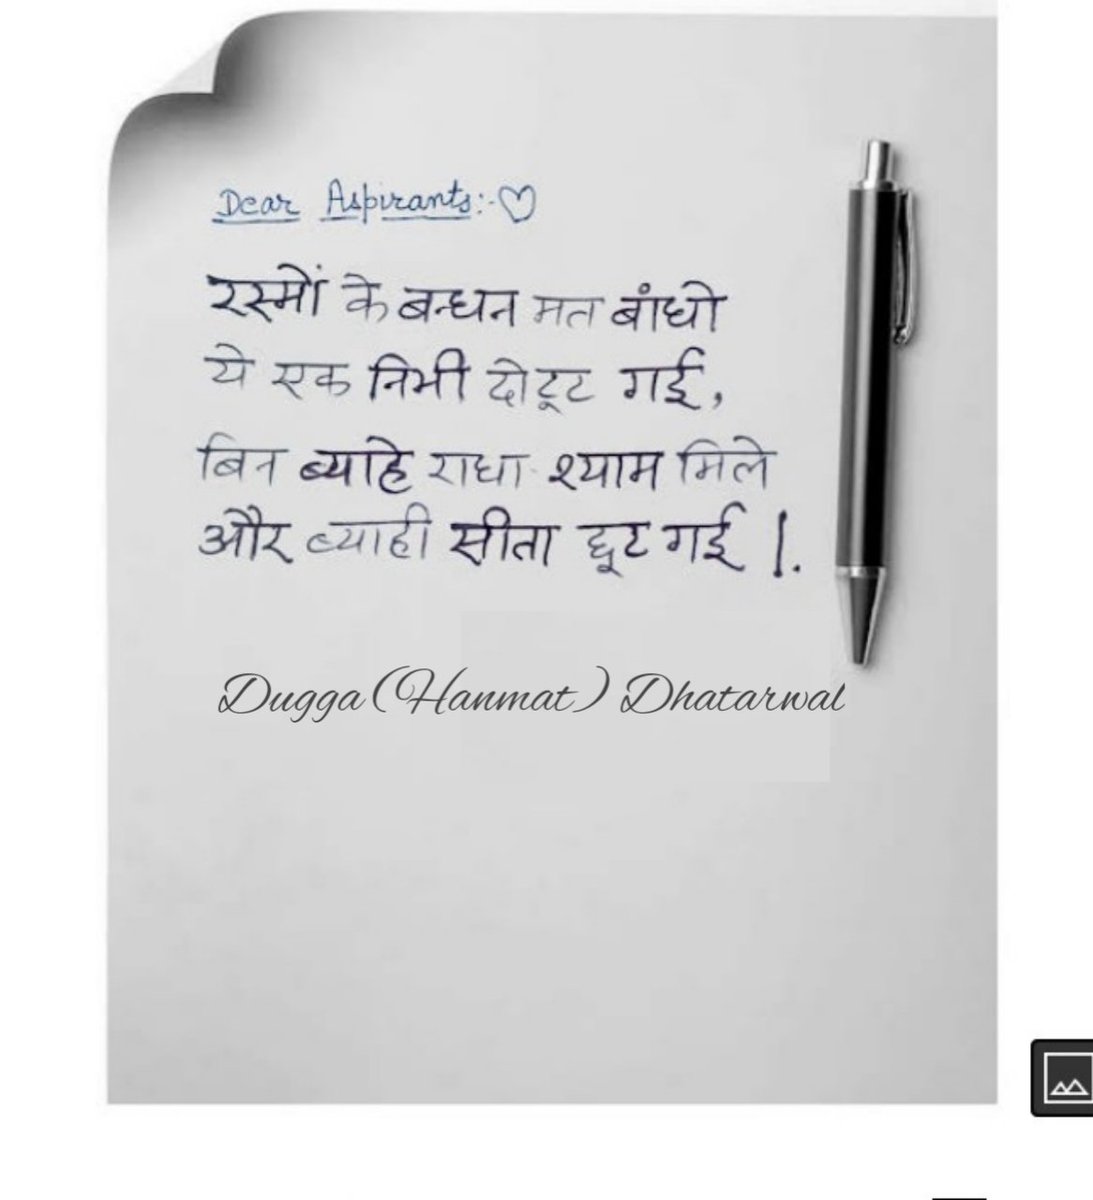 Dear Aspirants:-♡
रस्मों के बन्धन मत बांधो
ये एक निभी दो टूट गई,
बिन ब्याहे राधा श्याम मिले
और ब्याही सीता छूट गई |.
Dugga (Hanmat) Dhatarwal